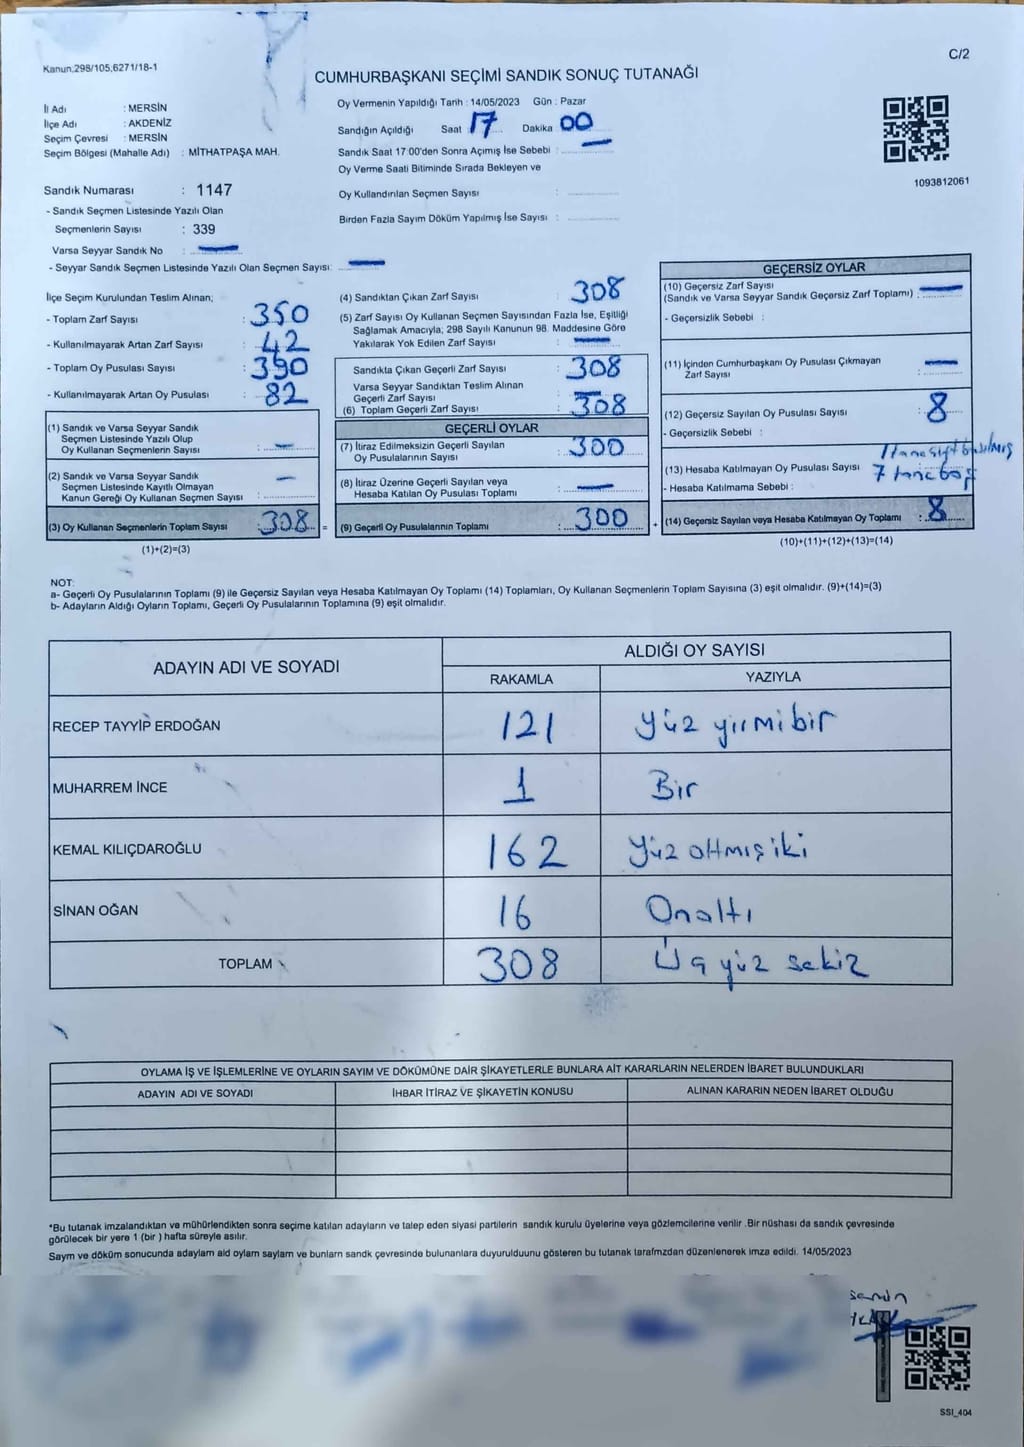 Kanun.298/105,6271/18-1
C/2
CUMHURBAŞKANI SEÇİMİ SANDIK SONUÇ TUTANAĞI
İl Adı : MERSİN
İlçe Adı : AKDENİZ
Seçim Çevresi : MERSİN
Seçim Bölgesi (Mahalle Adı) : MİTHATPAŞA MAH.
Oy Vermenin Yapıldığı Tarih : 14/05/2023 Gün : Pazar
Sandığın Açıldığı Saat : 17 Dakika 00
Sandık Saat 17 00'den Sonra Açımış İse Sebebi :
Oy Verme Saati Bitiminde Sırada Bekleyen ve
Oy Kullandırılan Seçmen Sayısı :
Birden Fazla Sayım Döküm Yapılmış İse Sayısı :
1093812061
Sandık Numarası : 1147
- Sandık Seçmen Listesinde Yazılı Olan
Seçmenlerin Sayısı : 339
Varsa Seyyar Sandık No :
- Seyyar Sandık Seçmen Listesinde Yazılı Olan Seçmen Sayısı:
İlçe Seçim Kurulundan Teslim Alınan;
- Toplam Zarf Sayısı : 350
- Kullanılmayarak Artan Zarf Sayısı : 42
- Toplam Oy Pusulası Sayısı : 390
- Kullanılmayarak Artan Oy Pusulası : 82
(1) Sandık ve Varsa Seyyar Sandık
Seçmen Listesinde Yazılı Olup
Oy Kullanan Seçmenlerin Sayısı :
(2) Sandık ve Varsa Seyyar Sandık
Seçmen Listesinde Kayıtlı Olmayan
Kanun Gereği Oy Kullanan Seçmen Sayısı :
(3) Oy Kullanan Seçmenlerin Toplam Sayısı : 308 =
(1)+(2)=(3)
(4) Sandıktan Çıkan Zarf Sayısı : 308
(5) Zarf Sayısı Oy Kullanan Seçmen Sayısından Fazla İse, Eşitliği
Sağlamak Amacıyla; 298 Sayılı Kanunun 98. Maddesine Göre
Yakılarak Yok Edilen Zarf Sayısı :
Sandıkta Çıkan Geçerli Zarf Sayısı : 308
Varsa Seyyar Sandıktan Teslim Alınan
Geçerli Zarf Sayısı :
(6) Toplam Geçerli Zarf Sayısı : 308
GEÇERLİ OYLAR
(7) İtiraz Edilmeksizin Geçerli Sayılan
Oy Pusulalarının Sayısı : 300
(8) İtiraz Üzerine Geçerli Sayılan veya
Hesaba Katılan Oy Pusulası Toplamı :
(9) Geçerli Oy Pusulalarının Toplamı : 300 +
GEÇERSİZ OYLAR
(10) Geçersiz Zarf Sayısı
(Sandık ve Varsa Seyyar Sandık Geçersiz Zarf Toplamı) :
- Geçersizlik Sebebi :
(11) İçinden Cumhurbaşkanı Oy Pusulası Çıkmayan
Zarf Sayısı :
(12) Geçersiz Sayılan Oy Pusulası Sayısı : 8
- Geçersizlik Sebebi :
1 tane çift basılmış
(13) Hesaba Katılmayan Oy Pusulası Sayısı : 7 tane boş
- Hesaba Katılmama Sebebi :
(14) Geçersiz Sayılan veya Hesaba Katılmayan Oy Toplamı : 8
(10)+(11)+(12)+(13)=(14)
NOT:
a- Geçerli Oy Pusulalarının Toplamı (9) ile Geçersiz Sayılan veya Hesaba Katılmayan Oy Toplamı (14) Toplamları, Oy Kullanan Seçmenlerin Toplam Sayısına (3) eşit olmalıdır. (9)+(14)=(3)
b- Adayların Aldığı Oyların Toplamı, Geçerli Oy Pusulalarının Toplamına (9) eşit olmalıdır.
ADAYIN ADI VE SOYADI
ALDIĞI OY SAYISI
RAKAMLA YAZIYLA
RECEP TAYYİP ERDOĞAN 121 Yüz yirmibir
MUHARREM İNCE 1 Bir
KEMAL KILIÇDAROĞLU 162 Yüz altmış iki
SİNAN OĞAN 16 Onaltı
TOPLAM 308 Üç yüz sekiz
OYLAMA İŞ VE İŞLEMLERİNE VE OYLARIN SAYIM VE DÖKÜMÜNE DAİR ŞİKAYETLERLE BUNLARA AİT KARARLARIN NELERDEN İBARET BULUNDUKLARI
ADAYIN ADI VE SOYADI İHBAR İTİRAZ VE ŞİKAYETİN KONUSU ALINAN KARARIN NEDEN İBARET OLDUĞU
*Bu tutanak imzalandıktan ve mühürlendikten sonra seçime katılan adayların ve talep eden siyasi partilerin sandık kurulu üyelerine veya gözlemcilerine verilir .Bir nüshası da sandık çevresinde
görülecek bir yere 1 (bir ) hafta süreyle asılır.
Sayım ve döküm sonucunda adaylam ald oylam saylam ve bunlarn sandk çevresinde bulunanlara duyurulduunu gösteren bu tutanak tarafmzdan düzenlenerek imza edildi. 14/05/2023
SSI_404